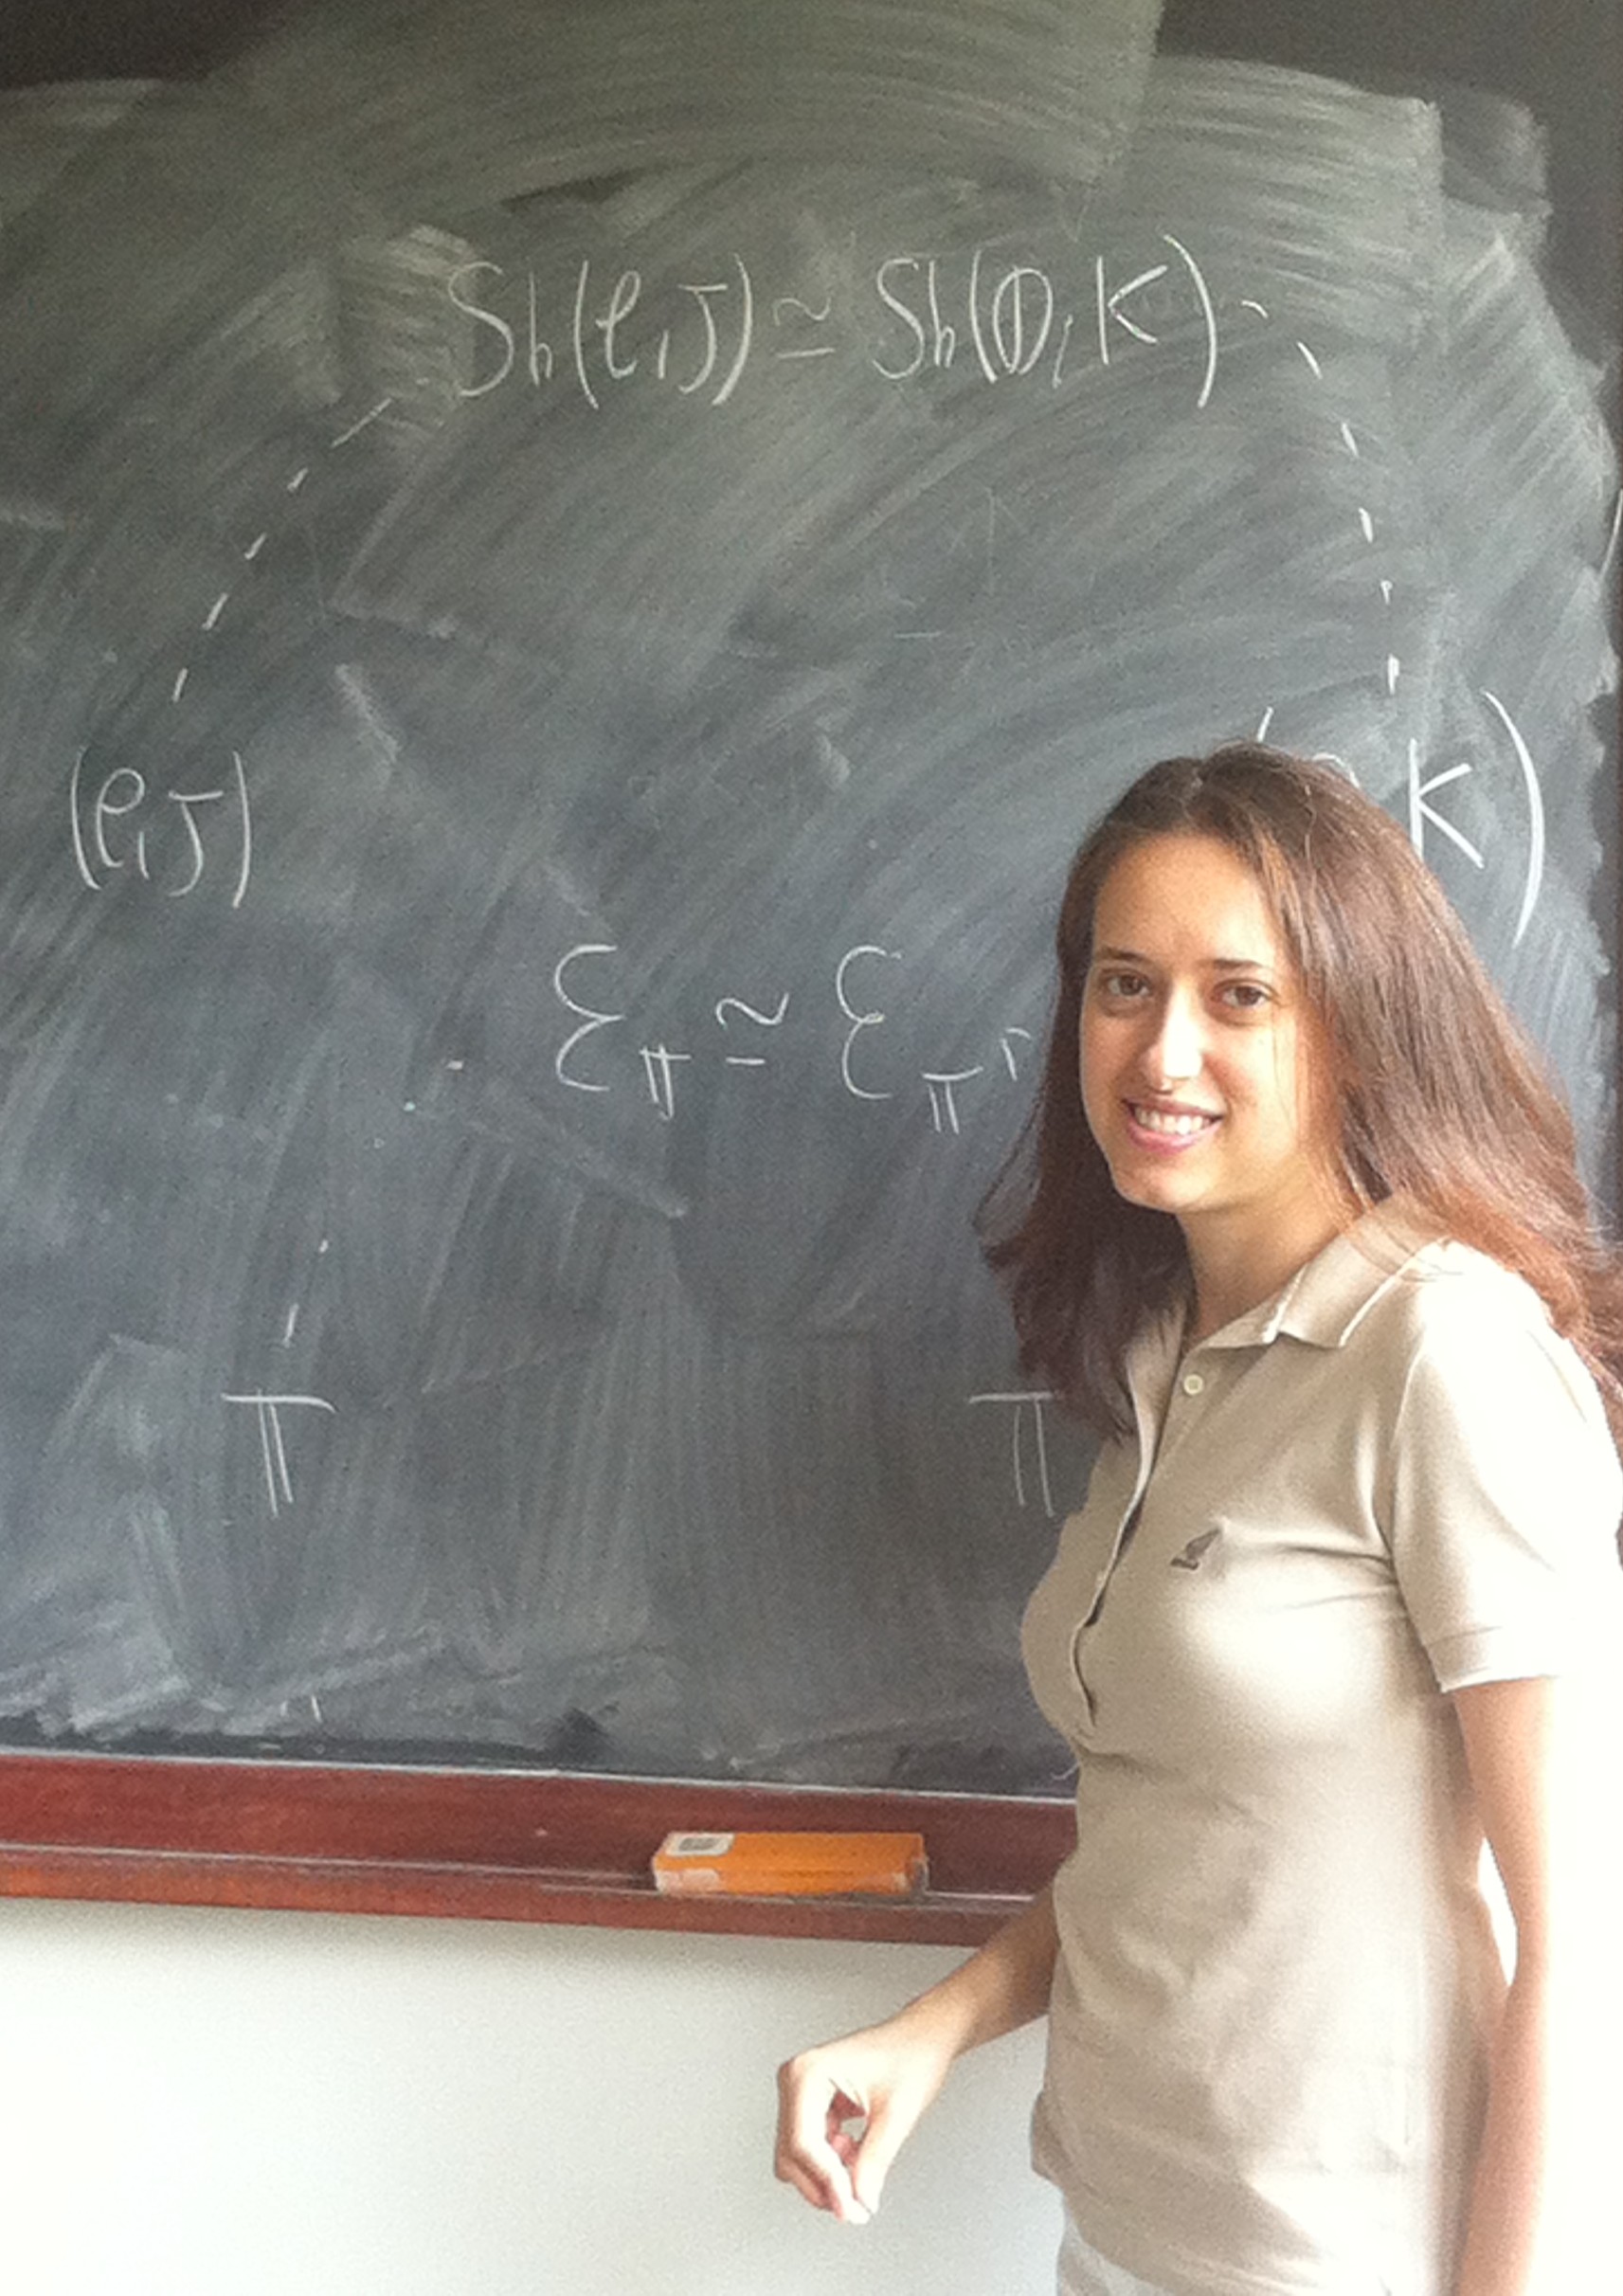 Sh(𝒞,J) ≃ Sh(𝔻,K)
(𝒞,J) K)
ℰ_𝕋 ≃ ℰ_𝕋'
𝕋 𝕋